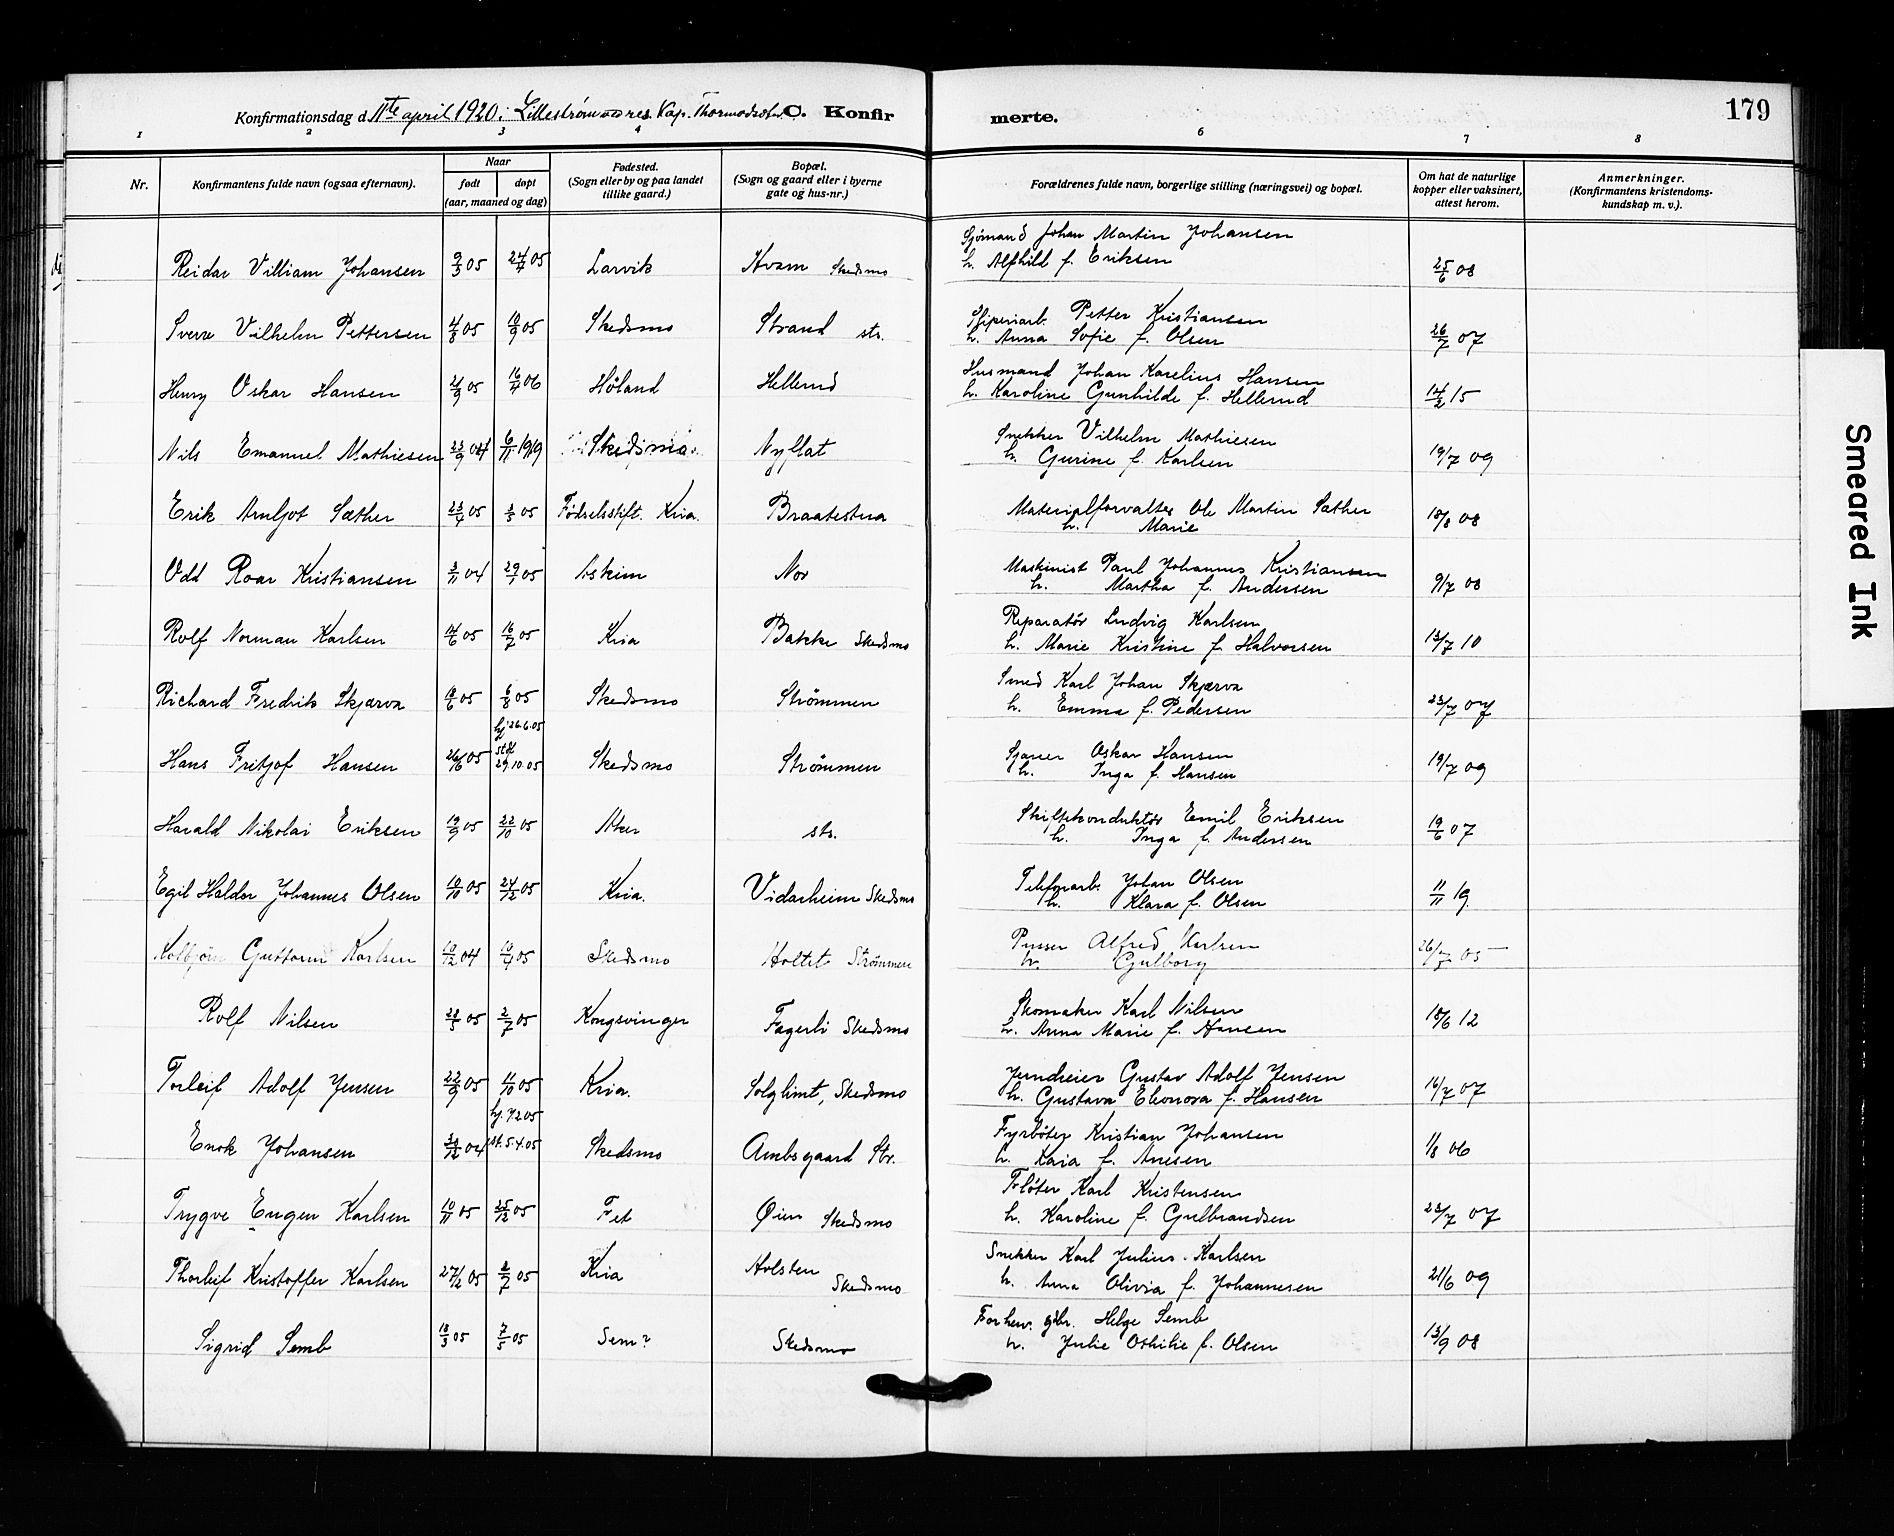 Konfirmationsdag d. 11te april 1920 i Lillestrøm res. Kap. C. Konfirmerte. 179
1 2 3 4 6 7 8
Nr. Konfirmantens fulde navn (ogsaa efternavn). Naar født døpt (aar, maaned og dag) Fødested. (Sogn eller by og paa landet tillike gaard.) Bopæl. (Sogn og gaard eller i byerne gate og hus-nr.) Forældrenes fulde navn, borgerlige stilling (næringsvei) og bopæl. Om hat de naturlige kopper eller vaksinert, attest herom. Anmerkninger. (Konfirmantens kristendoms-kundskap m. v.).
Sjømand Johan Martin Johansen
Reidar Villiam Johansen 9/3 05 24/4 05 Larvik Kvam Skedsmo h. Alfhild f. Eriksen 25/6 08
Petter Kristiansen
Sverre Vilhelm Pettersen 4/8 05 10/9 05 Skedsmo Strand str. h. Anna Sofie f. Olsen 26/7 07
Husmand Johan Karelius Hansen
Henry Oskar Hansen 05 16/4 06 Høland Hellerud h. Karoline Gunhilde f. Hellerud 14/2 15
Snekker Vilhelm Mathiesen
Nils Emanuel Mathiesen 23/9 04 6/11 1919 Skedsmo Nyflat h. Gurine f. Karlsen 19/7 09
Materialforvalter Ole Martin Sæther
Erik Arnljot Sæther 23/4 05 05 Fødselsstift. Kria. Braatestua h. Marie 18/8 08
Maskinist Paul Johannes Kristiansen
Odd Roar Kristiansen 3/11 04 29/1 05 Askim Nor h. Martha f. Andersen 9/7 08
Reparatør Ludvig Karlsen
Rolf Norman Karlsen 14/6 05 16/7 05 Kria Bakke Skedsmo h. Marie Kristine f. Halvorsen 13/7 10
Smed Karl Johan Skjærva
Richard Fredrik Skjærva 18/6 05 6/8 05 Skedsmo Strømmen h. Emma f. Pedersen 23/7 07
hj 26.6.05
Oskar Hansen
Hans Fritjof Hansen 26/6 05 st 29.10.05 Skedsmo Strømmen h. Inga f. Hansen 19/7 09
Skiftekonduktør Emil Eriksen
Harald Nikolai Eriksen 19/9 05 22/10 05 Aker str. h. Inga f. Andersen 19/6 07
Telefonarb. Johan Olsen
Egil Haldor Johannes Olsen 10/10 05 24/12 05 Kria. Vidarheim Skedsmo h. Klara f. Olsen 11/11 19.
Pusser Alfred Karlsen
Kolbjørn Guttorm Karlsen 19/12 04 05 Skedsmo Holtet Strømmen h. Gulborg 26/7 05
Skomaker Karl Nilsen
Rolf Nilsen 28/5 05 2/7 05 Kongsvinger Fagerli Skedsmo h. Anna Marie f. Hansen 18/6 12
Jerndreier Gustav Adolf Jensen
Torleif Adolf Jensen 22/9 05 11/10 05 Kria. Solglimt, Skedsmo h. Gustava Eleonora f. Hansen 16/7 07
hj. 7.2.05
Fyrbøter Kristian Johansen
Enok Johansen 30/12 04 st. 5.4.05 Skedsmo Ambsgaard Str. h. Kaia f. Anesen 1/8 06
Fløter Karl Kristensen
Trygve Eugen Karlsen 10/11 05 25/12 05 Fet Øien Skedsmo h. Karoline f. Gulbrandsen 23/7 07
Snekker Karl Julius Karlsen
Thorleif Kristoffer Karlsen 27/2 05 2/7 05 Kria Holsten Skedsmo h. Anna Olivia f. Johannesen 21/6 09
Forhenv. gbr. Helge Semb
Sigrid Semb 18/3 05 7/5 05 Sem? Skedsmo h. Julie Othilie f. Olsen 13/9 08
Smeared Ink